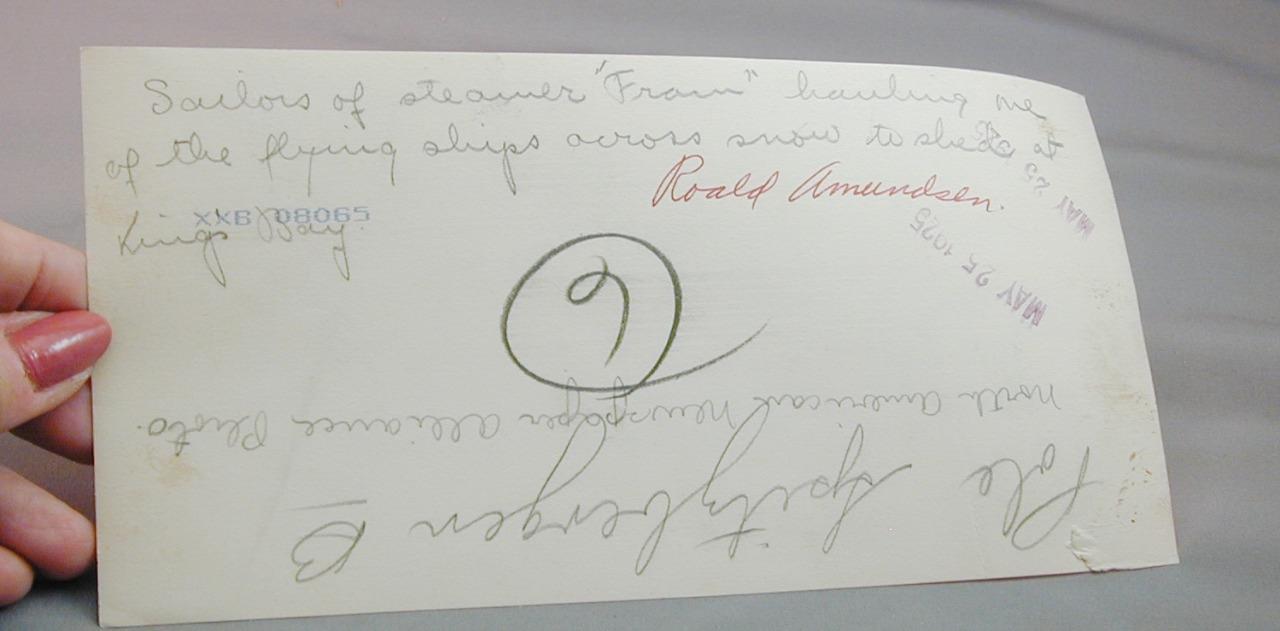 Sailors of steamer "Fram" hauling one
of the flying ships across snow to sheds at
Roald Amundsen.
XXB 08065
Kings Bay.
MAY 25
MAY 25 1925
6
North American Newspaper Alliance Photo.
Pole Spitzbergen B